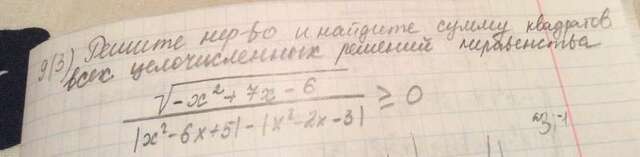 9(3) Решите нер-во и найдите сумму квадратов
всех целочисленных решений неравенства
√(-x²+7x-6) / (|x²-6x+5| - |x²-2x-3|) ≥ 0